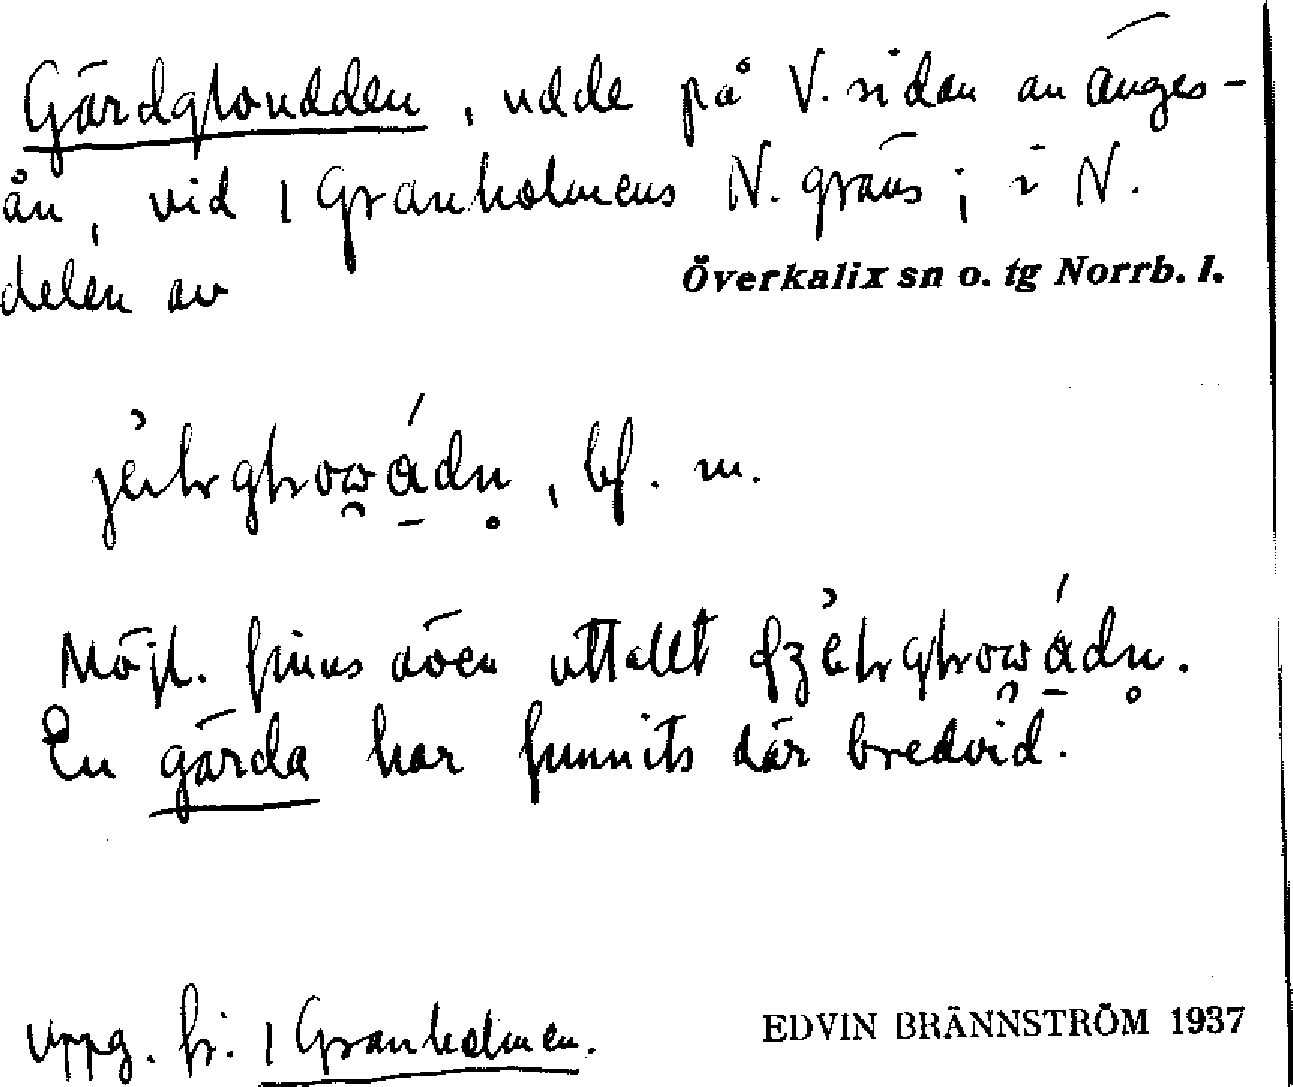 Gärdgloudden, udde på V. sidan av Änges-
ån, vid 1 Granholmens N. gräns; i N.
delen av Överkalix sn o. tg Norrb. l.
, bf. m.
Möjl. finns även uttalet
En gärda har funnits där bredvid.
Uppg. fr. 1 Granholmen. EDVIN BRÄNNSTRÖM 1937